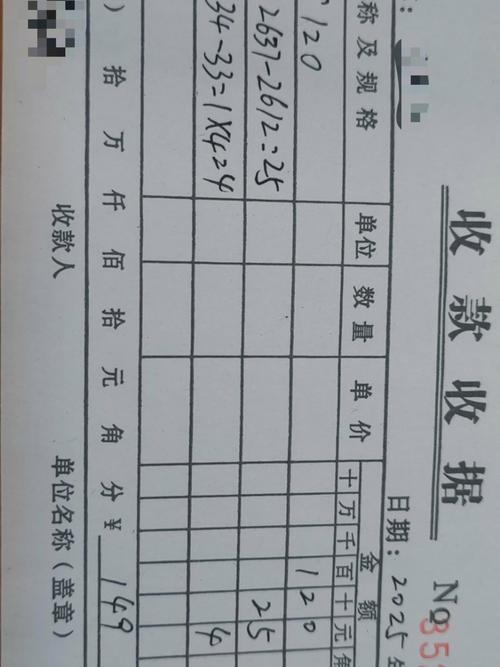 收款收据
No 35
日期：2025年
称及规格 单位 数量 单价 金额
十万千百十元角
120 120
2637-2612=25 25
34-33=1×4=4 4
）拾万仟佰拾元角分￥149
收款人 单位名称（盖章）